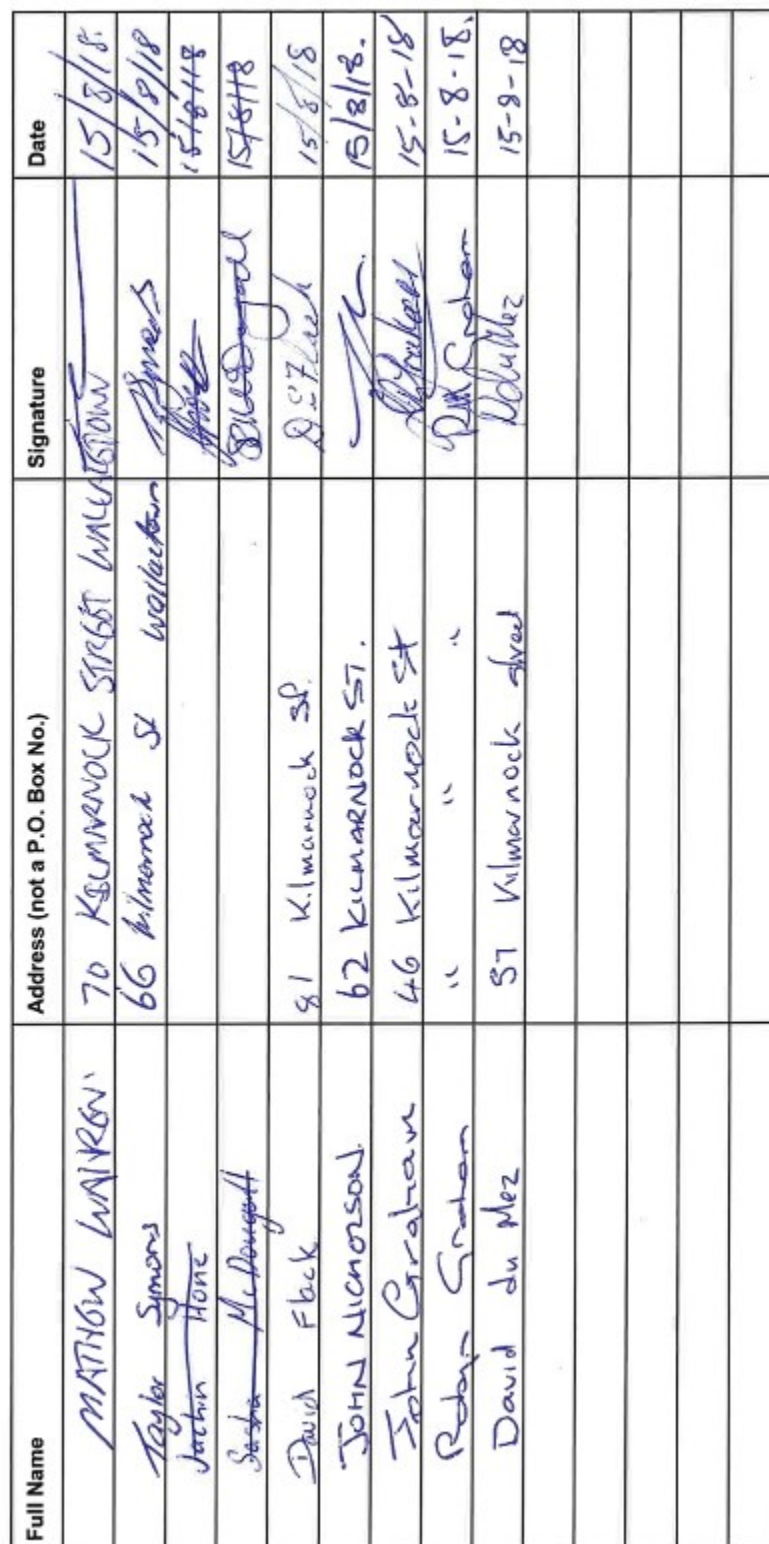 Full Name Address (not a P.O. Box No.) Signature Date
MATHEW 70 KILMARNOCK STREET 15/8/18.
Taylor Symons 66 Kilmarnock St Wallactown 15/8/18
Jachin Hone 15/8/18
Sasha McDougall 15/8/18
David Flack 81 Kilmarnock St. 15/8/18
JOHN NICHOLSON. 62 KILMARNOCK ST. 15/8/18.
John Graham 46 Kilmarnock St 15-8-18
Robyn Graham " " " 15-8-18.
David du Mez 57 Kilmarnock street 15-8-18